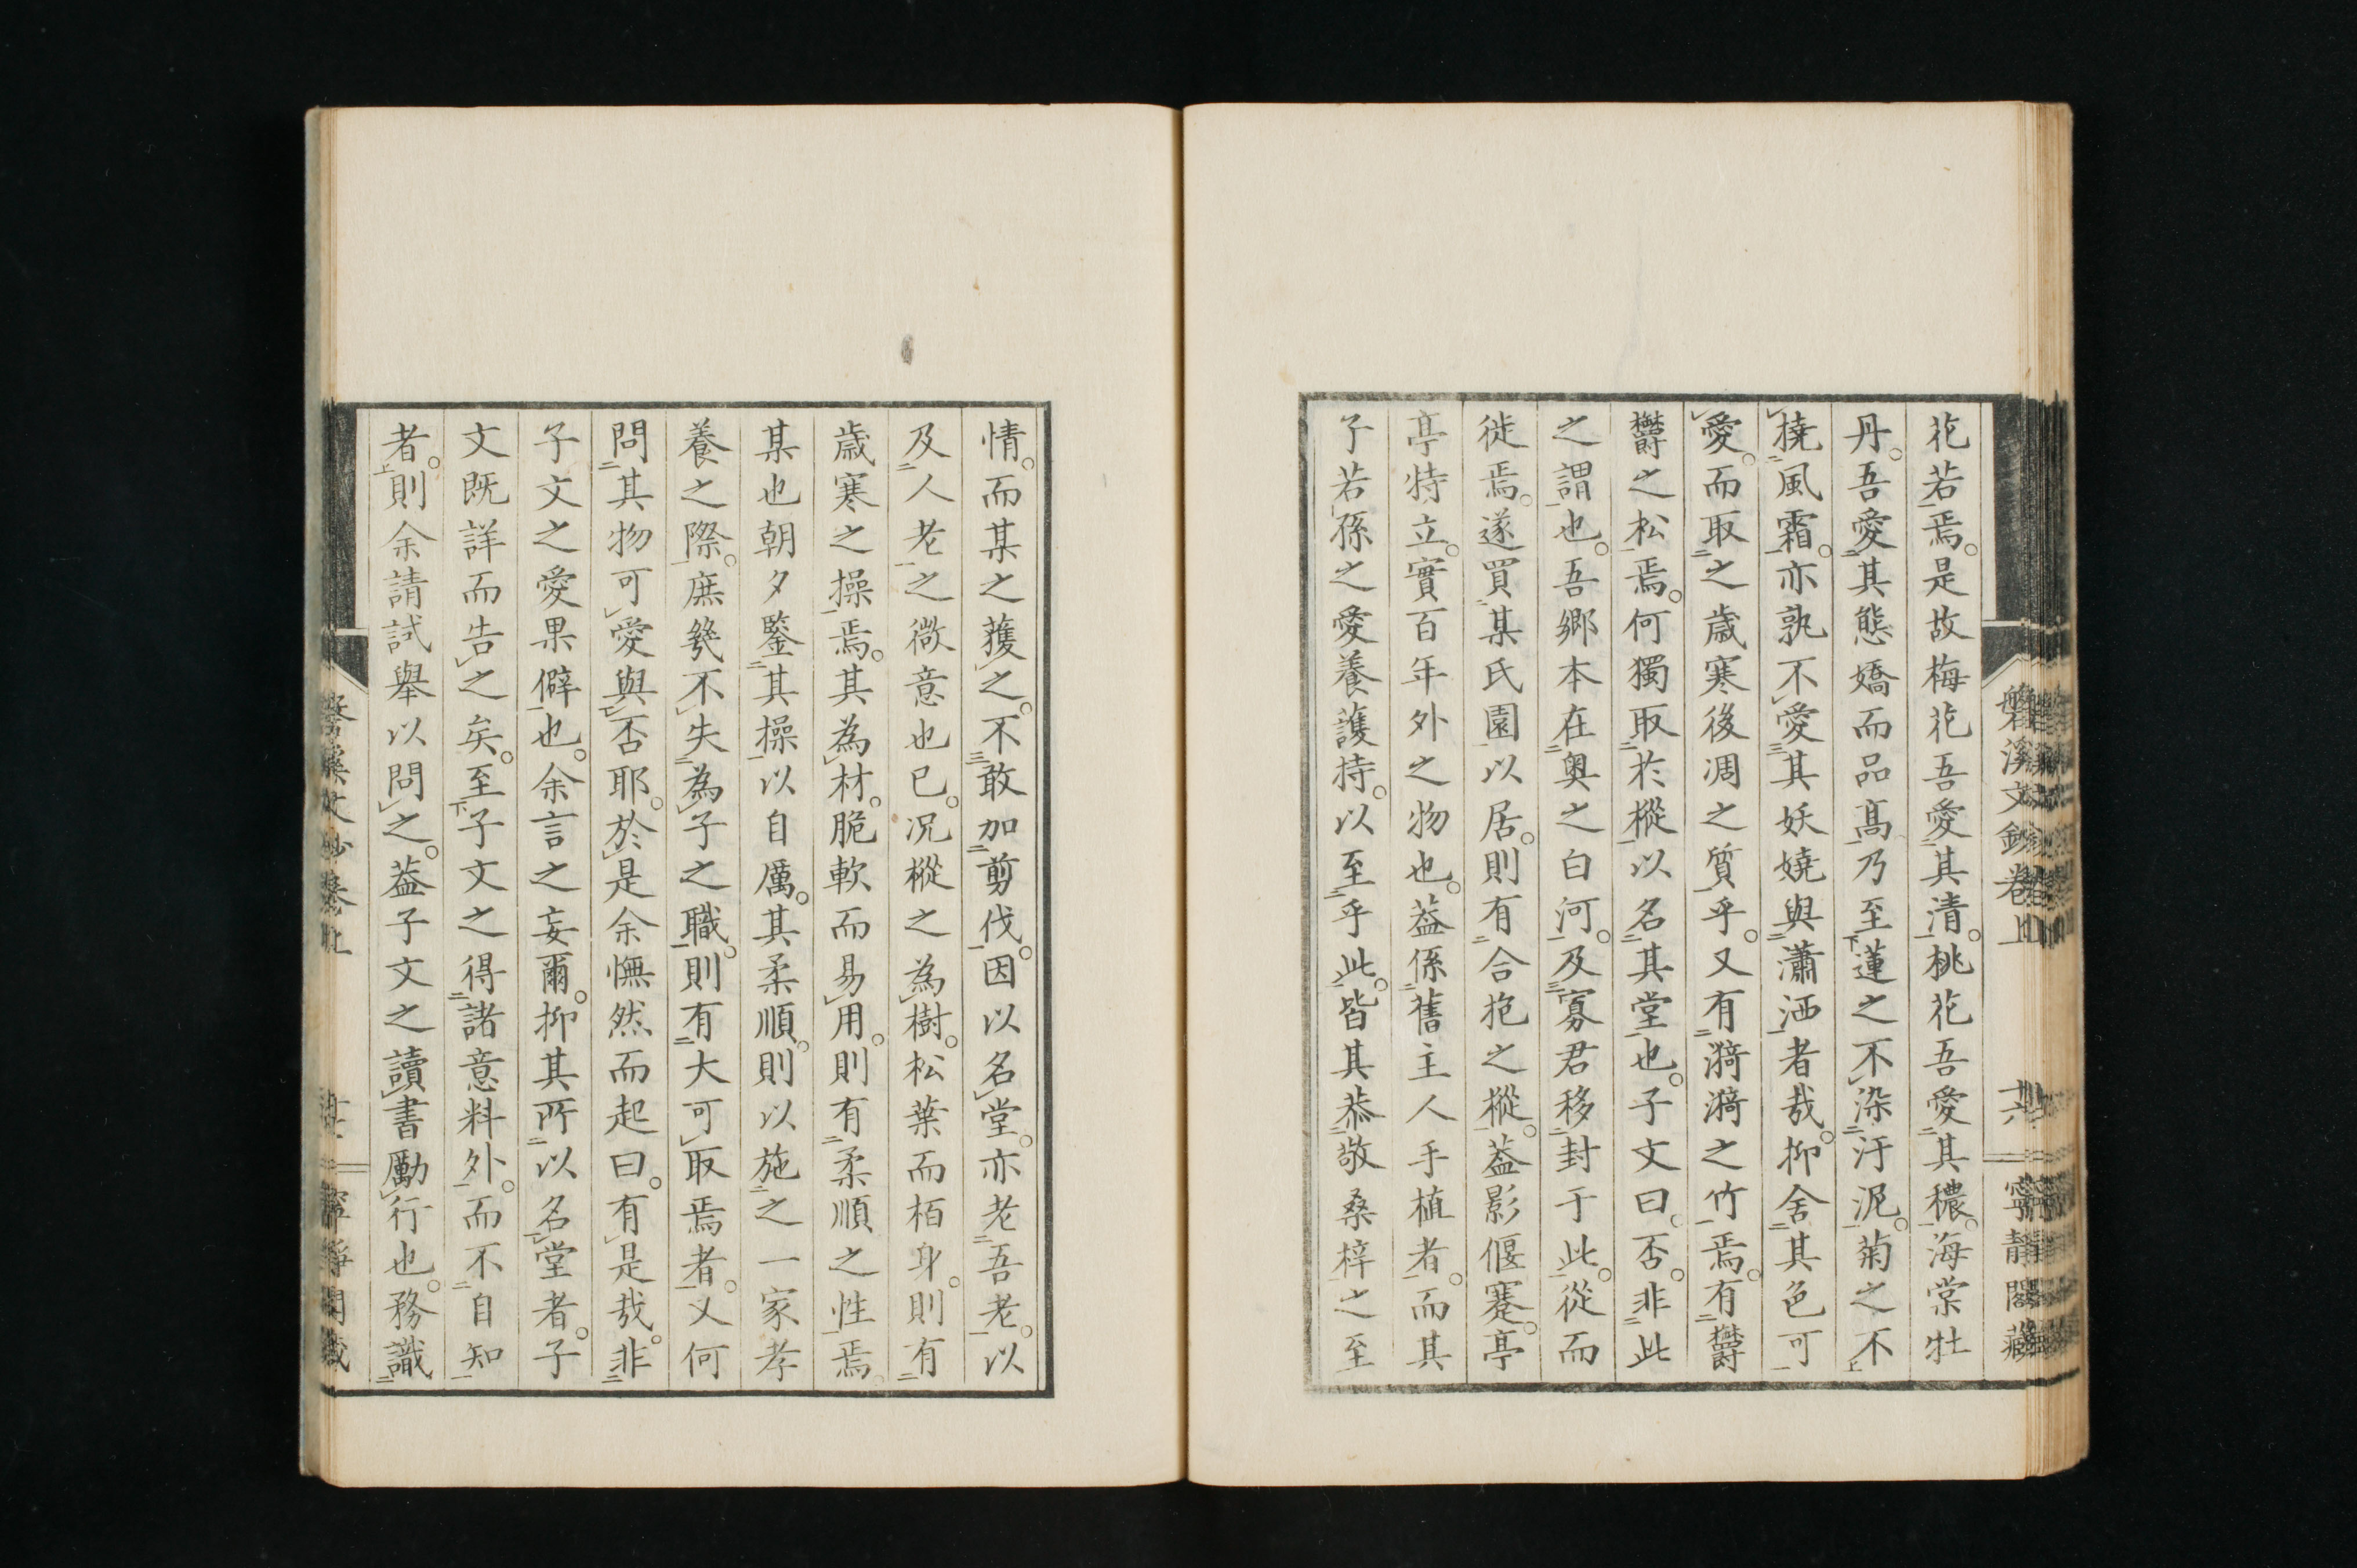 磐溪文鈔卷上
十六
寧靜閣藏
花若焉。是故梅花吾愛其清。桃花吾愛其穠。海棠牡
丹。吾愛其態嬌而品高。乃至蓮之不染汙泥。菊之不
撓風霜。亦孰不愛其妖嬈與瀟洒者哉。抑舍其色可
愛。而取之歲寒後凋之質乎。又有漪漪之竹焉。有欝
欝之松焉。何獨取於樅以名其堂也。子文曰。否。非此
之謂也。吾鄉本在奧之白河。及寡君移封于此。從而
徙焉。遂買某氏園以居。則有合抱之樅。葢影偃蹇。亭
亭特立。實百年外之物也。葢係舊主人手植者。而其
子若孫之愛養護持。以至乎此。皆其恭敬桑梓之至
情。而某之獲之。不敢加剪伐。因以名堂。亦老吾老。以
及人老之微意也已。况樅之為樹。松葉而栢身。則有
歲寒之操焉。其為材。脆軟而易用。則有柔順之性焉。
某也朝夕鑒其操以自厲。其柔順。則以施之一家孝
養之際。庶幾不失為子之職。則有大可取焉者。又何
問其物可愛與否耶。於是余憮然而起曰。有是哉。非
子文之愛果僻也。余言之妄爾。抑其所以名堂者。子
文既詳而告之矣。至子文之得諸意料外。而不自知
者。則余請試舉以問之。葢子文之讀書勵行也。務識